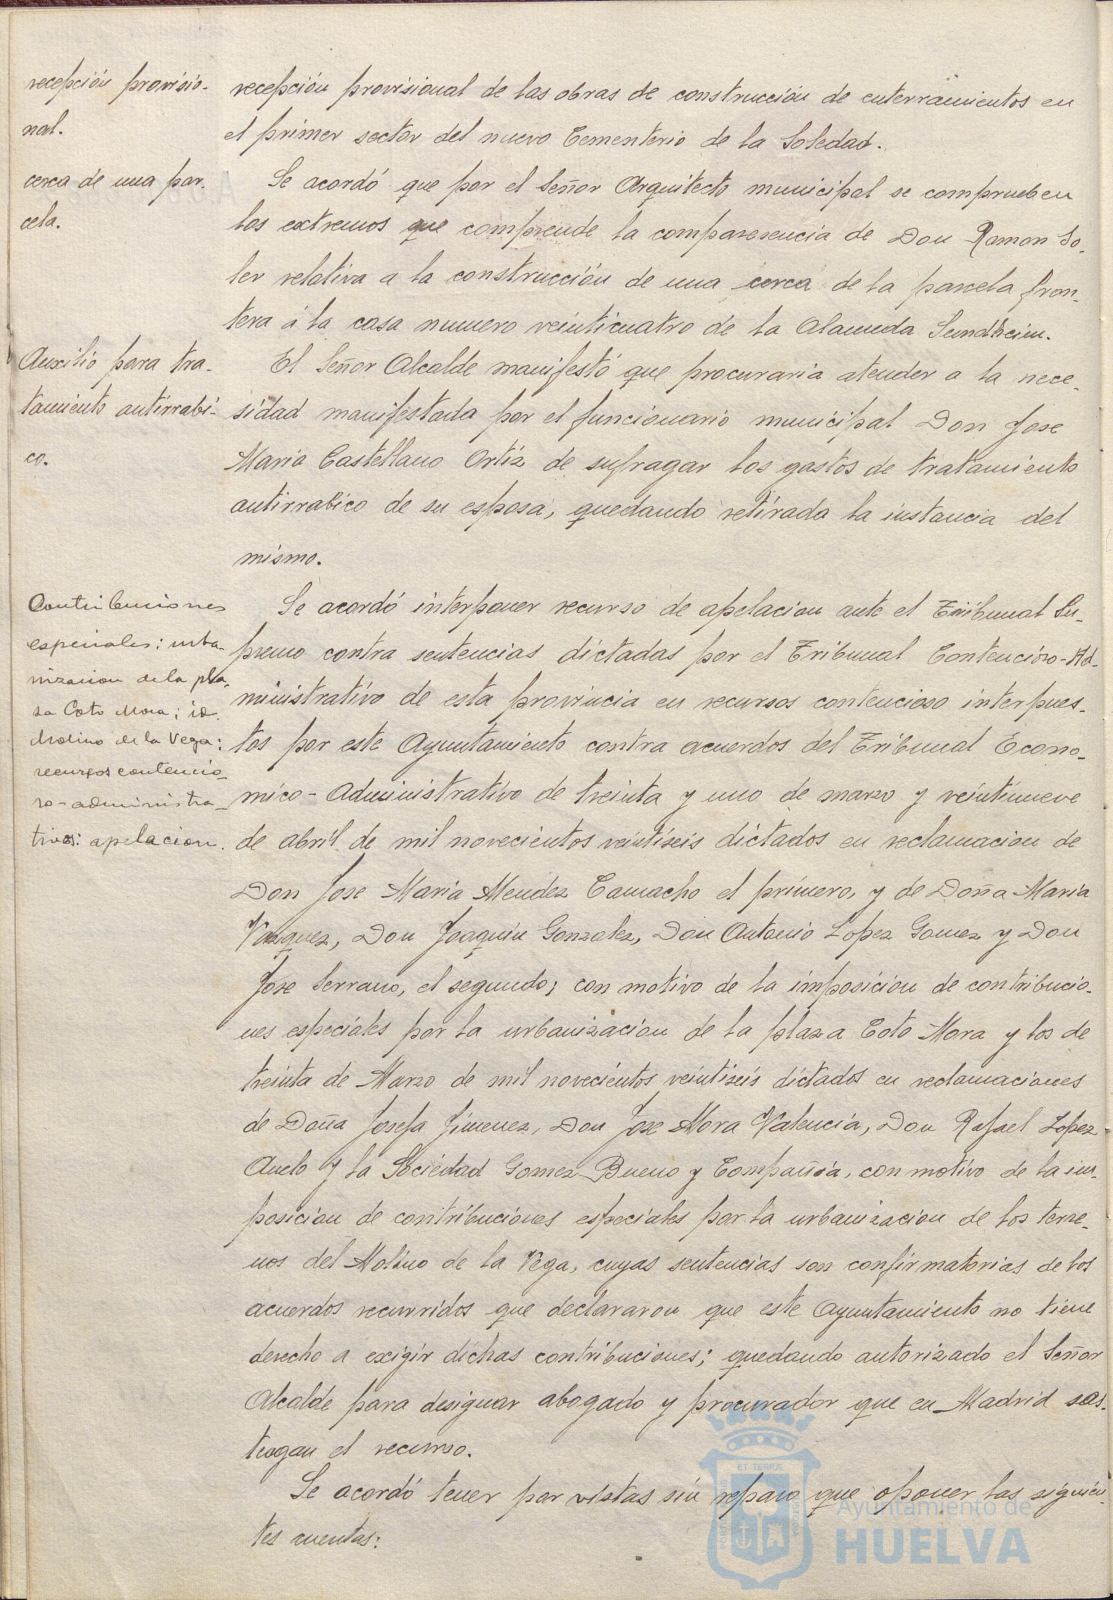 recepción provisio-
nal.
recepción provisional de las obras de construcción de enterramientos en
el primer sector del nuevo Cementerio de la Soledad.
cerca de una par-
cela.
Se acordó que por el Señor Arquitecto municipal se comprueben
los extremos que comprende la comparesencia de Don Ramon So-
ler relativa a la construcción de una cerca de la parcela fron-
tera á la casa numero veinticuatro de la Alameda Sundheim.
Auxilio para tra-
tamiento antirrabi-
co.
El Señor Alcalde manifestó que procuraria atender a la nece-
sidad manifestada por el funcionario municipal Don Jose
Maria Castellano Ortiz de sufragar los gastos de tratamiento
antirrabico de su esposa, quedando retirada la instancia del
mismo.
Contribuciones
especiales: urba-
nizacion de la pla-
za Coto Mora; id.
Molino de la Vega:
recursos contencio-
so-administra-
tivos: apelacion.
Se acordó interponer recurso de apelacion ante el Tribunal Su-
premo contra sentencias dictadas por el Tribunal Contencioso-Ad-
ministrativo de esta provincia en recursos contencioso interpues-
tos por este Ayuntamiento contra acuerdos del Tribunal Econo-
mico-Administrativo de treinta y uno de marzo y veintinueve
de abril de mil novecientos veintiseis dictados en reclamacion de
Don Jose Maria Mendez Camacho el primero, y de Doña Maria
Vazquez, Don Joaquin Gonzalez, Don Antonio Lopez Gomez y Don
Jose Serrano, el segundo; con motivo de la imposicion de contribucio-
nes especiales por la urbanizacion de la plaza Coto Mora y los de
treinta de Marzo de mil novecientos veintiseis dictados en reclamaciones
de Doña Josefa Jimenez, Don Jose Mora Valencia, Don Rafael Lopez
y la Sociedad Gomez Bueno y Compañía, con motivo de la im-
posicion de contribuciones especiales por la urbanizacion de los terre-
nos del Molino de la Vega, cuyas sentencias son confirmatorias de los
acuerdos recurridos que declararon que este Ayuntamiento no tiene
derecho a exigir dichas contribuciones; quedando autorizado el Señor
Alcalde para designar abogado y procurador que en Madrid sos-
tengan el recurso.
Se acordó tener por vistas sin reparo que oponer las siguien-
tes cuentas:
Ayuntamiento de
HUELVA